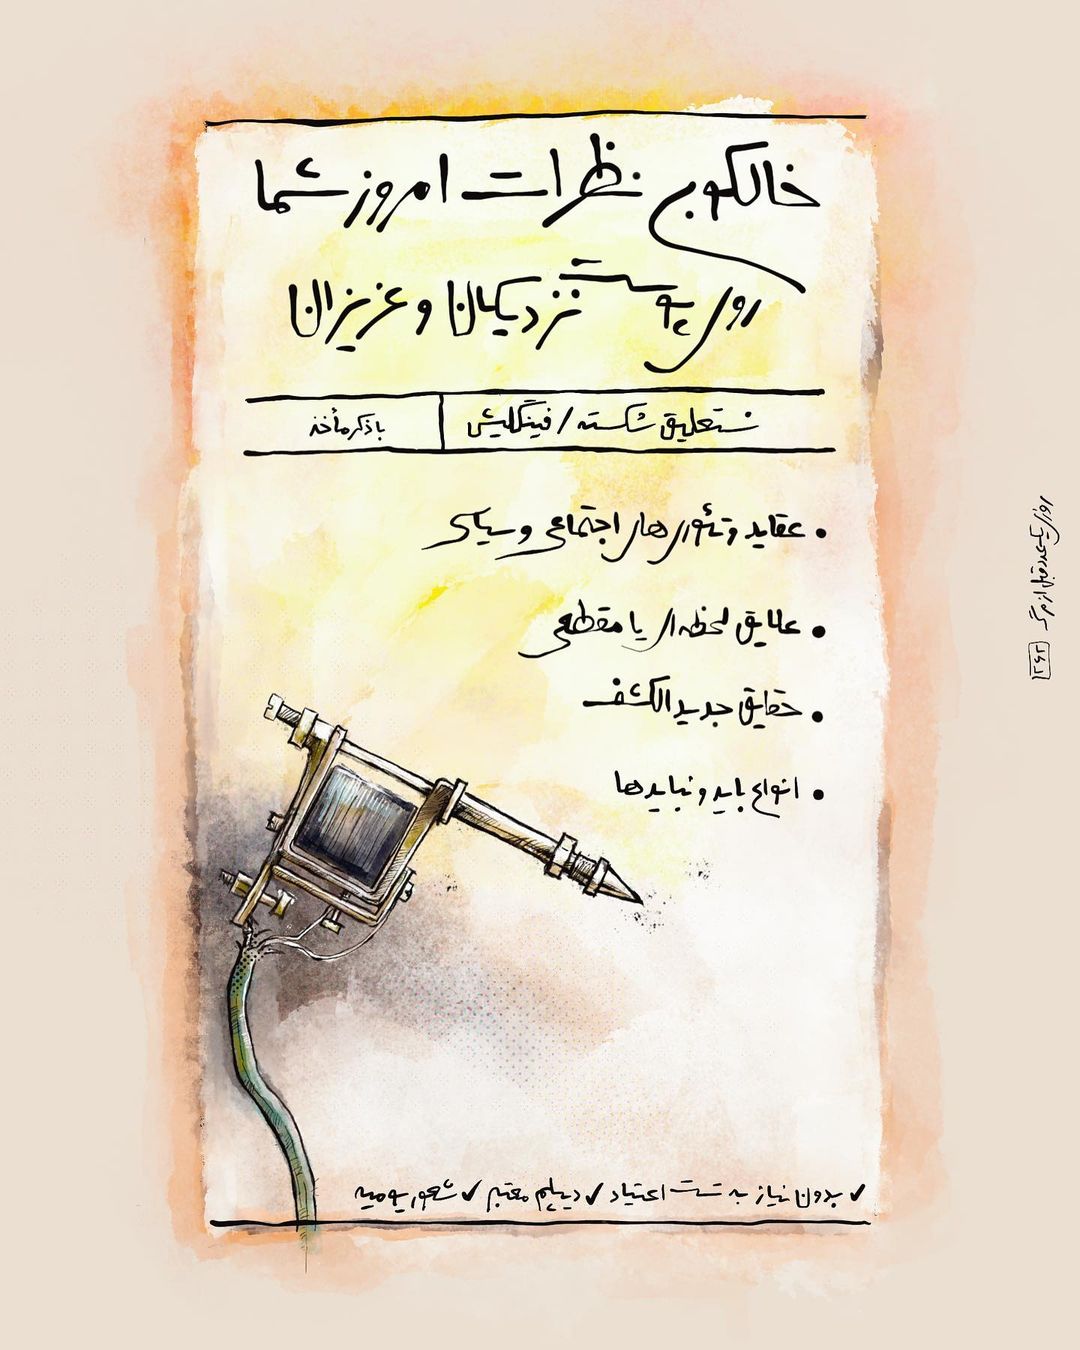 خالکوبی نظرات امروز شما
روی پوست نزدیکان و عزیزان
نستعلیق شکسته / فینگلیش
با ذکر مأخذ
• عقاید و تئوری‌های اجتماعی و سیاسی
• علایق لحظه‌ای یا مقطعی
• حقایق جدیدالکشف
• انواع باید و نبایدها
✓ بدون نیاز به تست اعتیاد ✓ دیپلم معتبر ✓ شعور یومیه
روزی یک عدد قبل از مرگ
۱۲۶۲